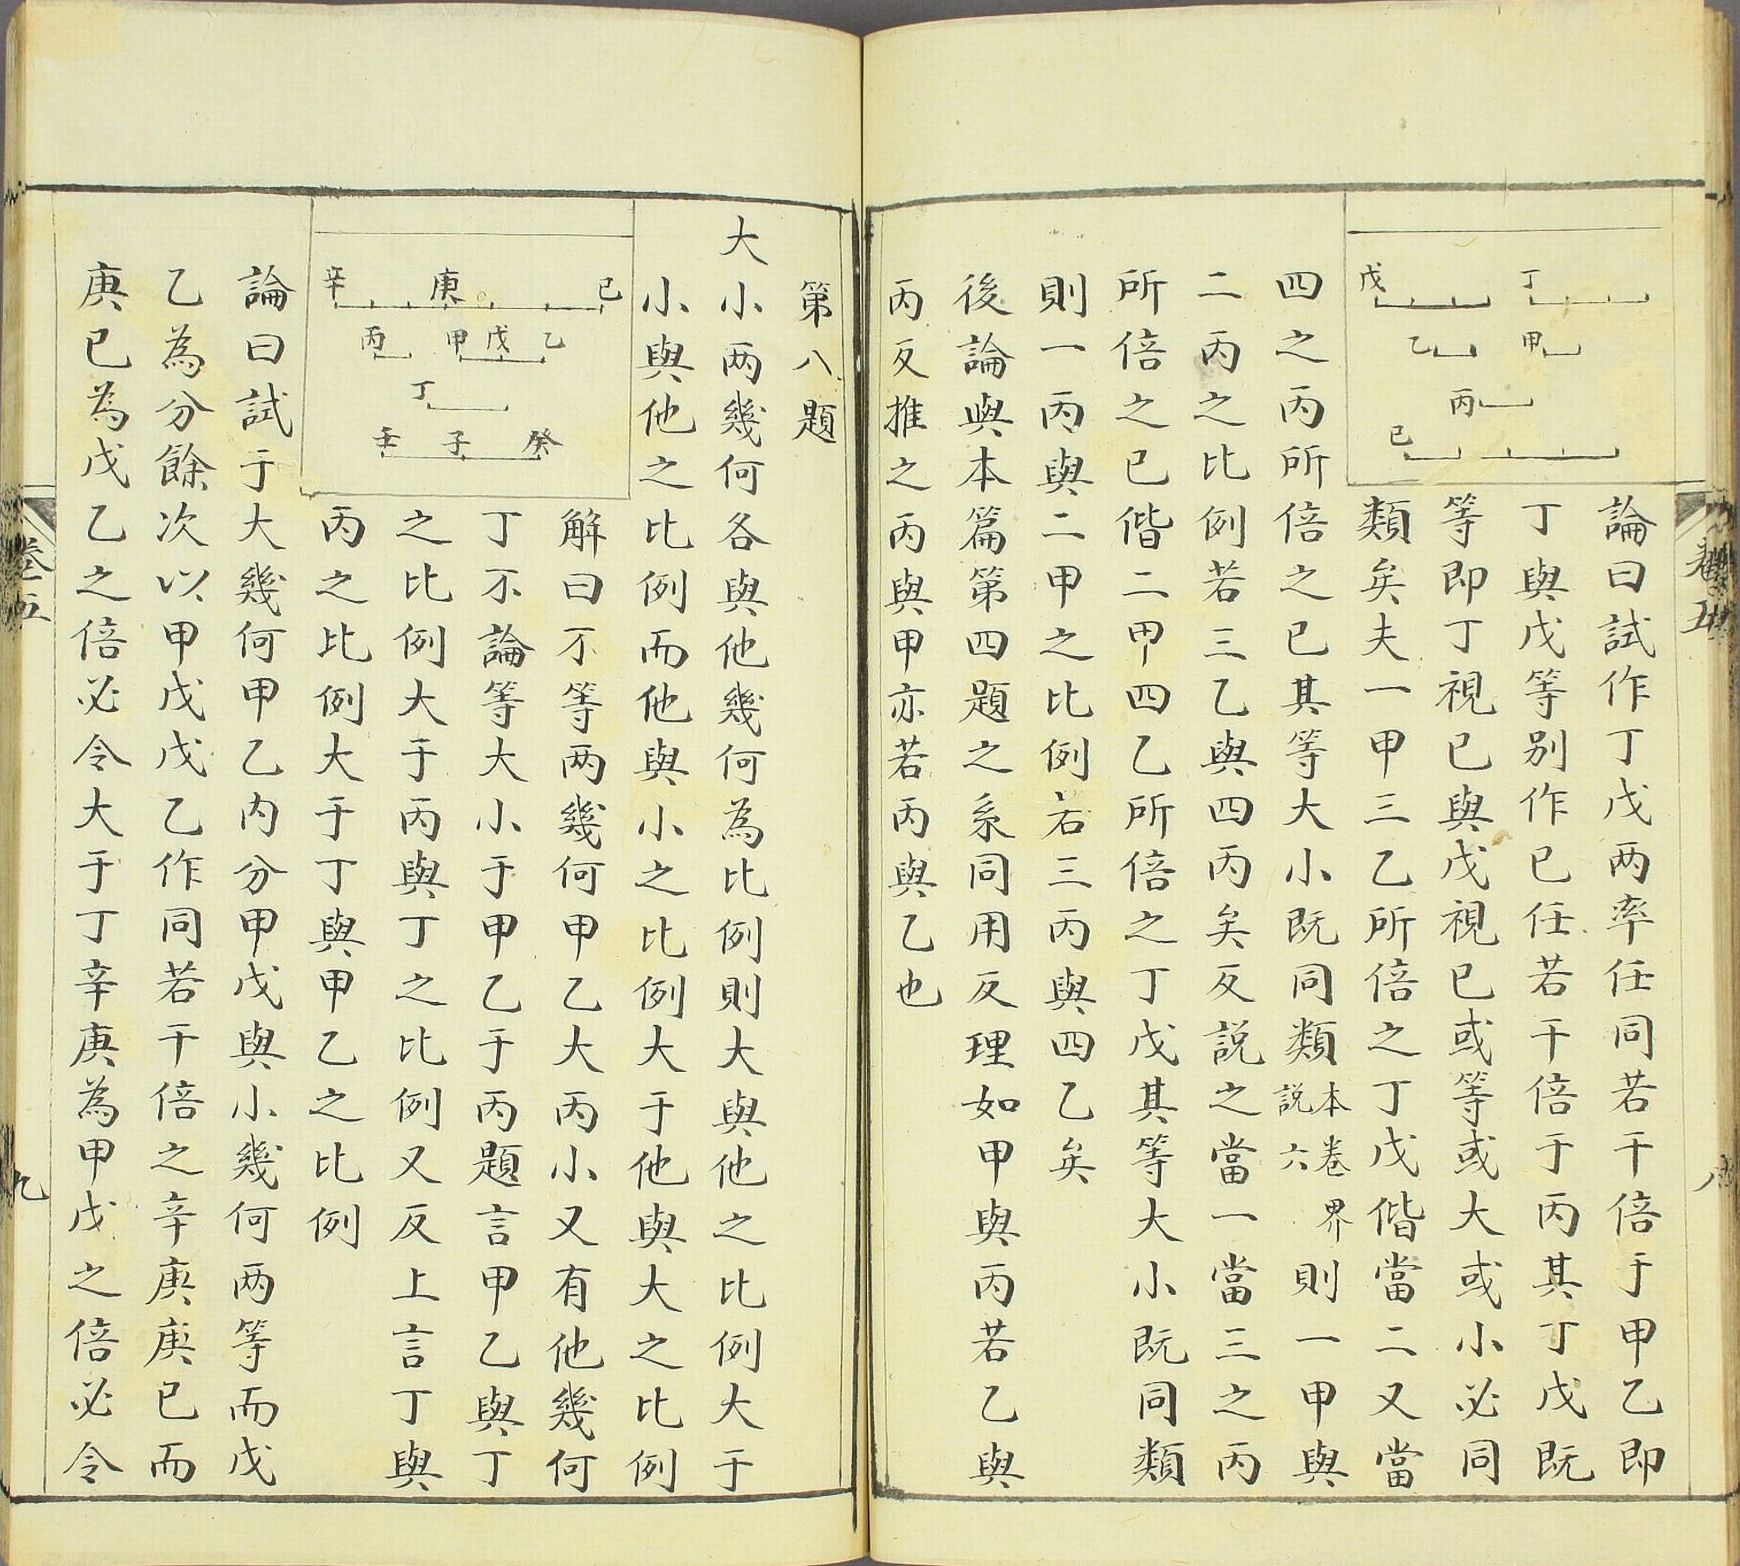 卷五
八
丁
戊
甲
乙
丙
已
論曰試作丁戊两率任同若干倍于甲乙即
丁與戊等别作已任若干倍于丙其丁戊既
等即丁視已與戊視已或等或大或小必同
類矣夫一甲三乙所倍之丁戊偕當二又當
四之丙所倍之已其等大小既同類本卷界説六則一甲與
二丙之比例若三乙與四丙矣反説之當一當三之丙
所倍之已偕二甲四乙所倍之丁戊其等大小既同類
則一丙與二甲之比例右三丙與四乙矣
後論與本篇第四題之系同用反理如甲與丙若乙與
丙反推之丙與甲亦若丙與乙也
第八題
大小两幾何各與他幾何為比例則大與他之比例大于
小與他之比例而他與小之比例大于他與大之比例
已
庚
辛
乙
戊
甲
丙
丁
癸
子
壬
解曰不等两幾何甲乙大丙小又有他幾何
丁不論等大小于甲乙于丙題言甲乙與丁
之比例大于丙與丁之比例又反上言丁與
丙之比例大于丁與甲乙之比例
論曰試于大幾何甲乙内分甲戊與小幾何两等而戊
乙為分餘次以甲戊戊乙作同若干倍之辛庚庚已而
庚已為戊乙之倍必令大于丁辛庚為甲戊之倍必令
卷五
九